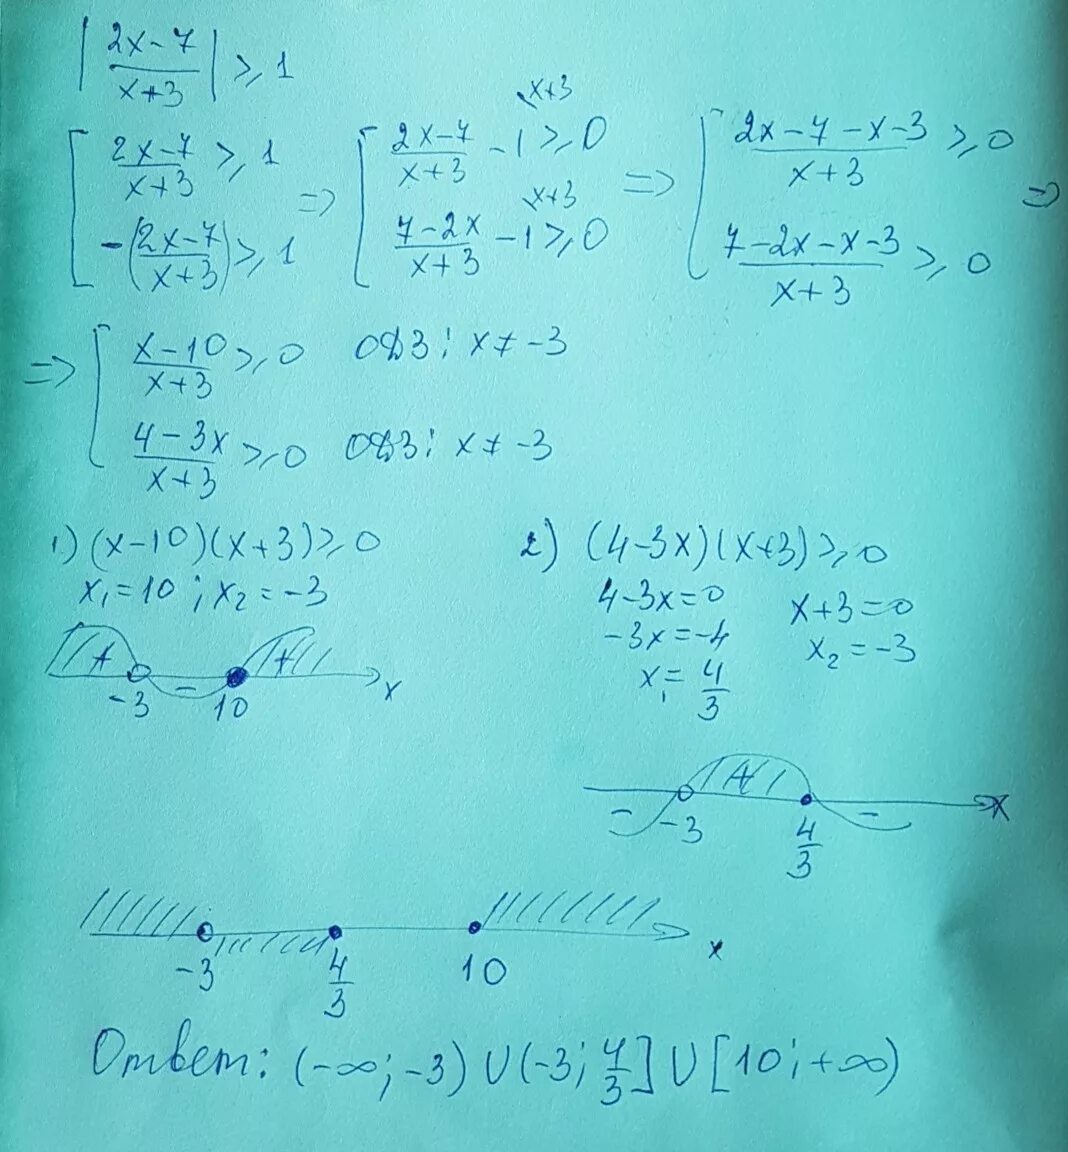 |(2x-7)/(x+3)| ≥ 1
[ (2x-7)/(x+3) ≥ 1 => [ (2x-7)/(x+3) - 1 \x+3 ≥ 0 => [ (2x-7-x-3)/(x+3) ≥ 0 =>
-((2x-7)/(x+3)) ≥ 1 (7-2x)/(x+3) - 1 \x+3 ≥ 0 (7-2x-x-3)/(x+3) ≥ 0
=> [ (x-10)/(x+3) ≥ 0 ОДЗ: x ≠ -3
(4-3x)/(x+3) ≥ 0 ОДЗ: x ≠ -3
1) (x-10)(x+3) ≥ 0
x₁ = 10 ; x₂ = -3
+ - + x
-3 10
2) (4-3x)(x+3) ≥ 0
4-3x=0 x+3=0
-3x=-4 x₂=-3
x₁= 4/3
- + - x
-3 4/3
-3 4/3 10 x
Ответ: (-∞; -3) ∪ (-3; 4/3] ∪ [10; +∞)